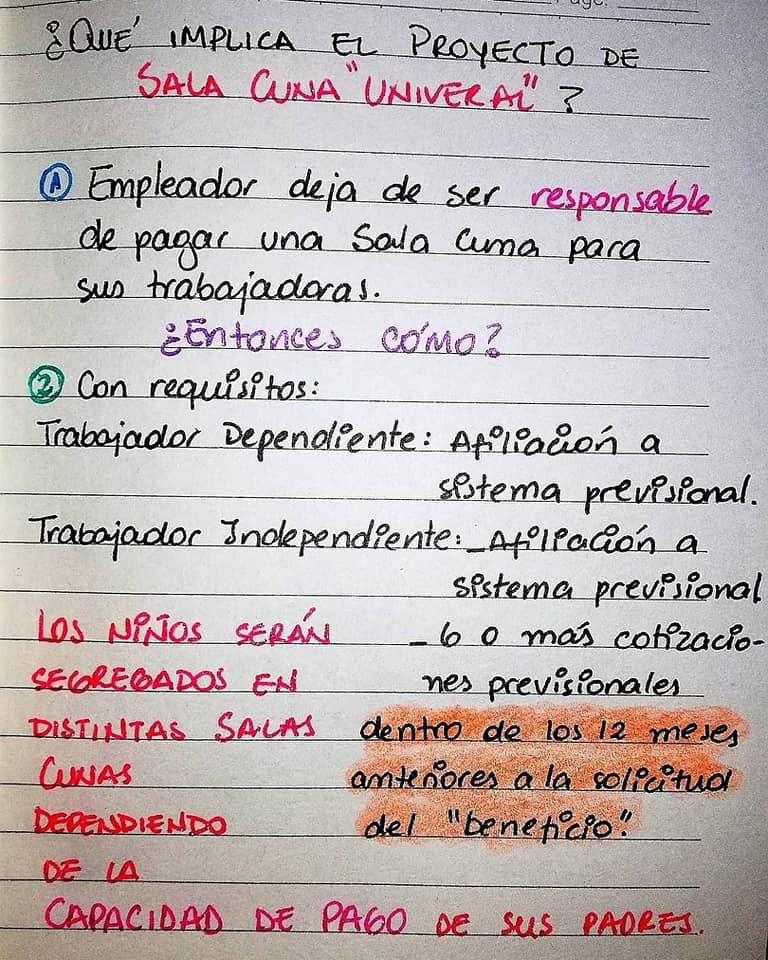 ¿QUÉ IMPLICA EL PROYECTO DE
SALA CUNA "UNIVERAL"?
A Empleador deja de ser responsable
de pagar una Sala Cuna para
sus trabajadoras.
¿Entonces CÓMO?
2 Con requisitos:
Trabajador Dependiente: Afiliación a
sistema previsional.
Trabajador Independiente: _Afiliación a
sistema previsional
_ 6 o más cotizacio-
nes previsionales
dentro de los 12 meses
anteriores a la solicitud
del "beneficio".
LOS NIÑOS SERÁN
SEGREGADOS EN
DISTINTAS SALAS
CUNAS
DEPENDIENDO
DE LA
CAPACIDAD DE PAGO DE SUS PADRES.